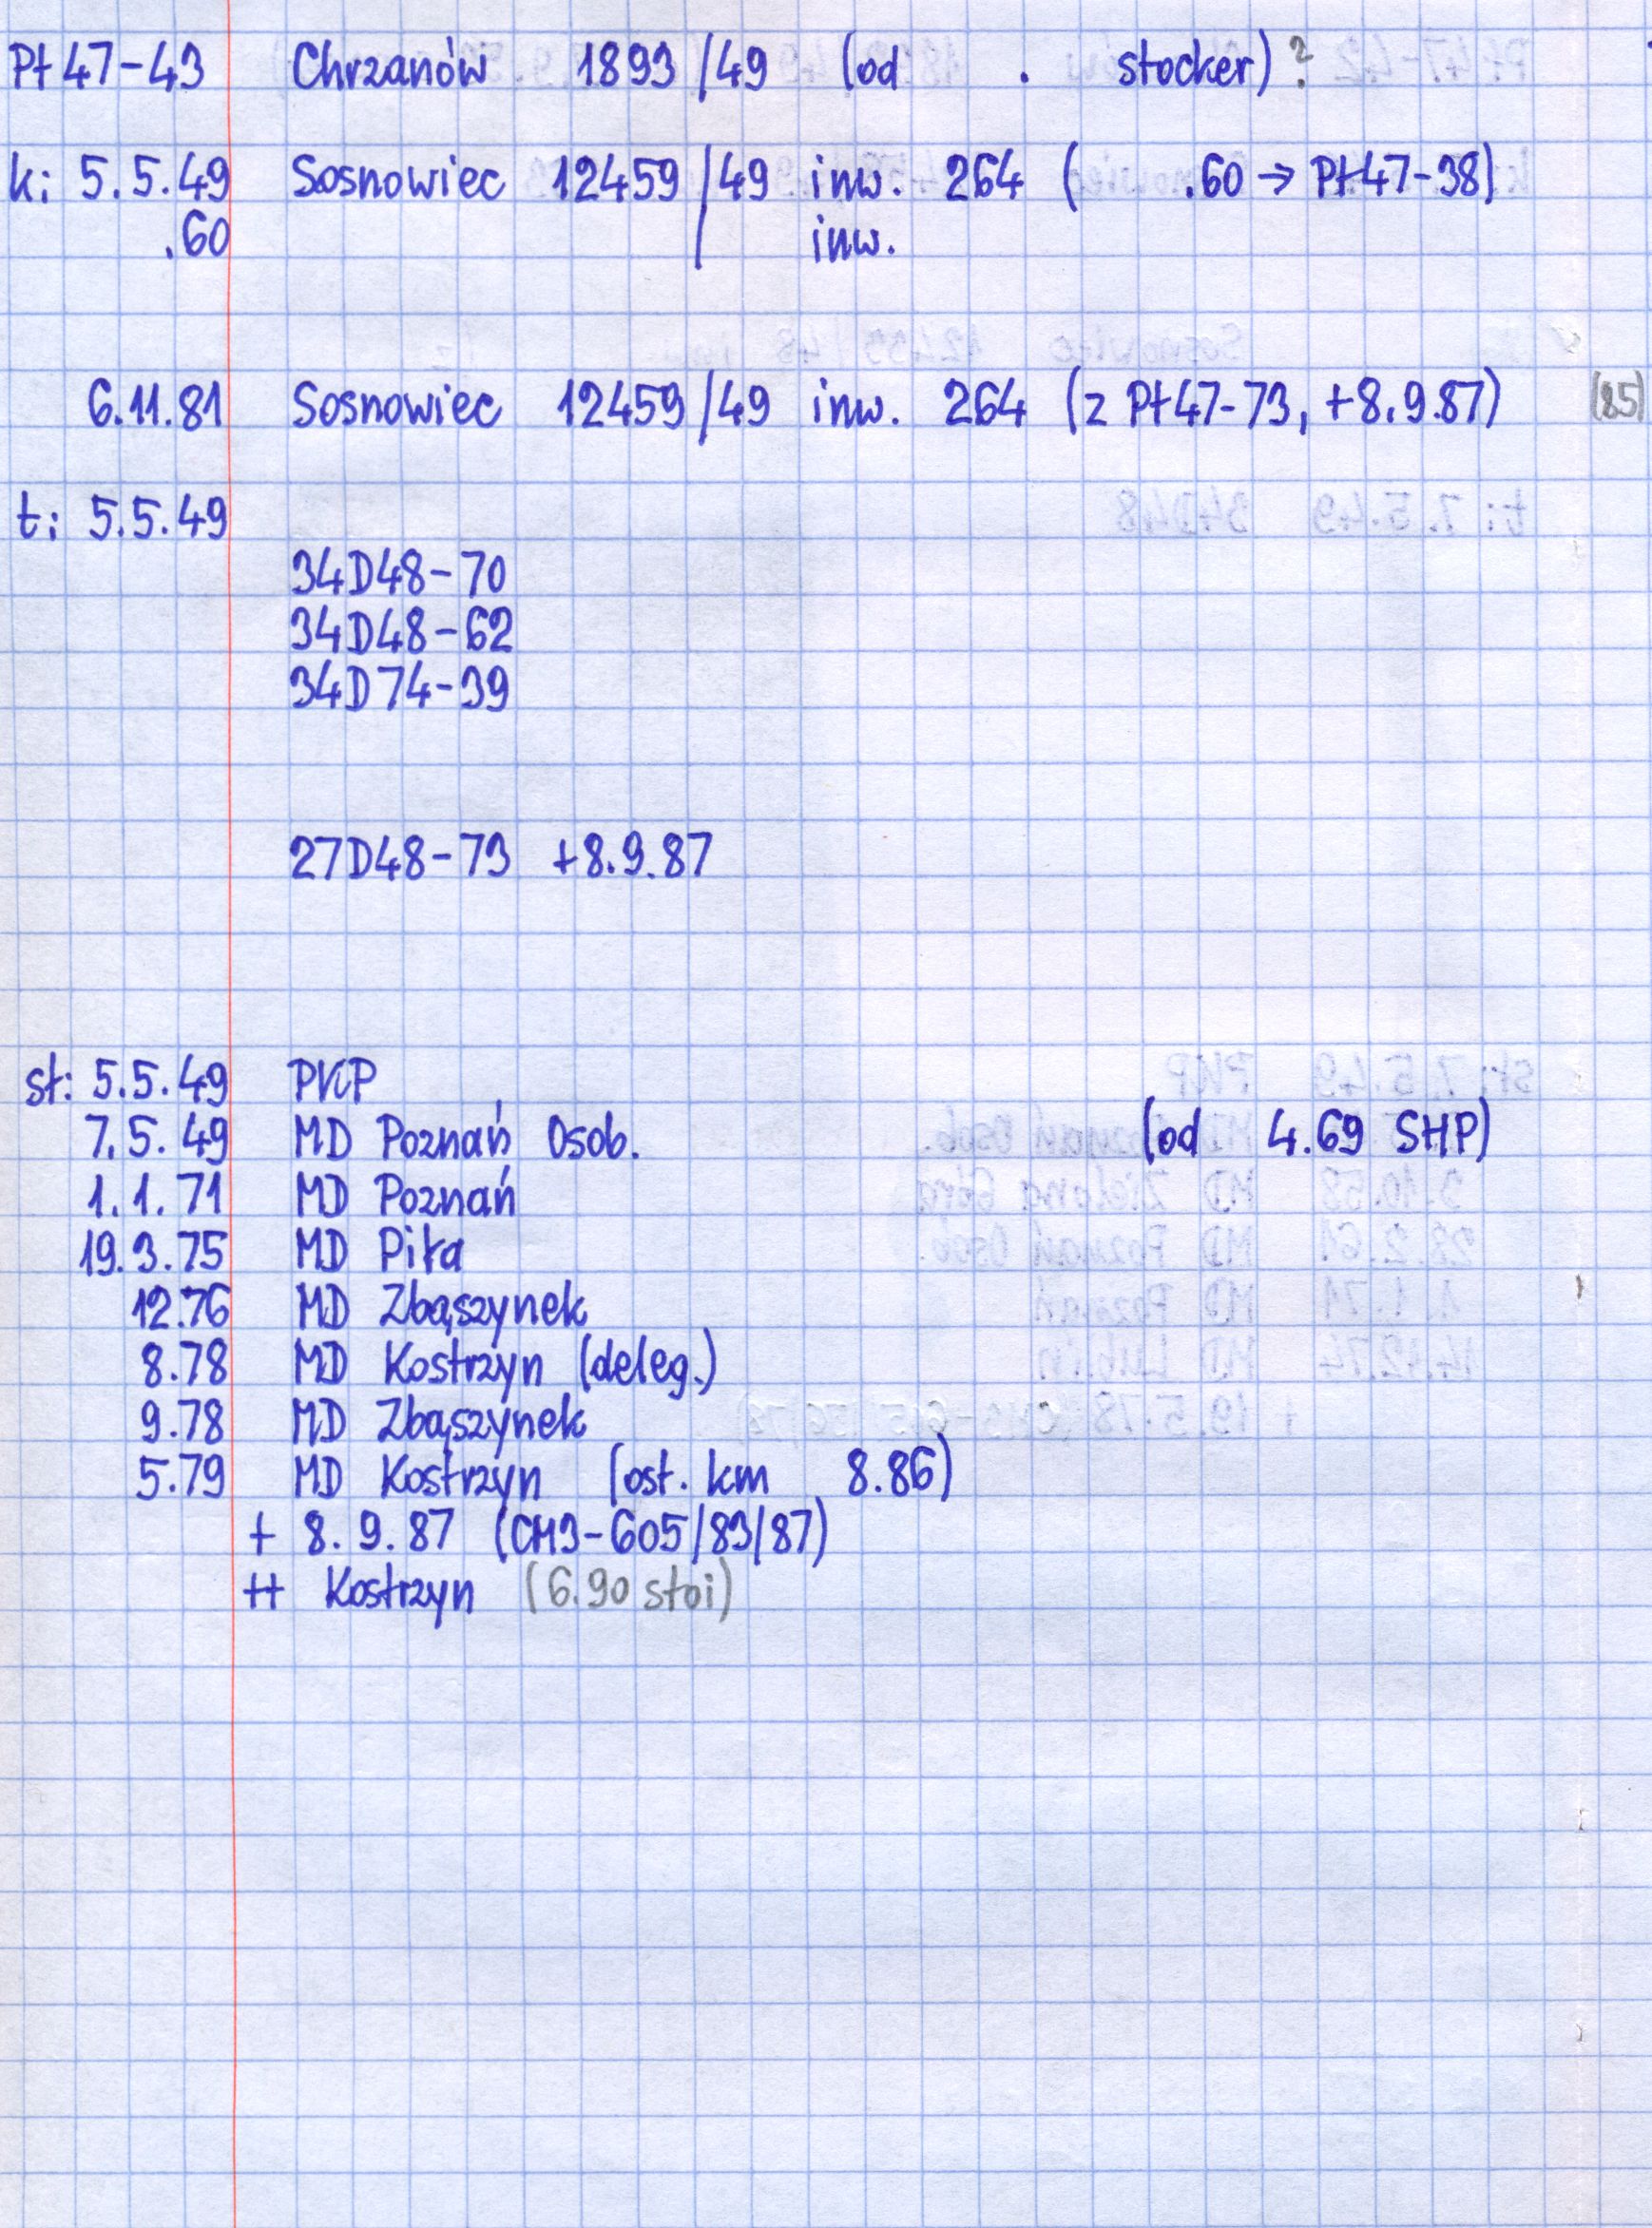 Pt47-43 Chrzanów 1893/49 (od . stocker) ?
k: 5.5.49 Sosnowiec 12459/49 inw. 264 ( .60 → Pt47-38)
.60 / inw.
6.11.81 Sosnowiec 12459/49 inw. 264 (z Pt47-73, +8.9.87) (85)
t: 5.5.49
34D48-70
34D48-62
34D74-39
27D48-73 +8.9.87
st: 5.5.49 PKP
7.5.49 MD Poznań Osob. (od 4.69 SHP)
1.1.71 MD Poznań
19.3.75 MD Piła
12.76 MD Zbąszynek
8.78 MD Kostrzyn (deleg.)
9.78 MD Zbąszynek
5.79 MD Kostrzyn (ost. km 8.86)
+ 8.9.87 (CM3-605/83/87)
++ Kostrzyn (6.90 stoi)